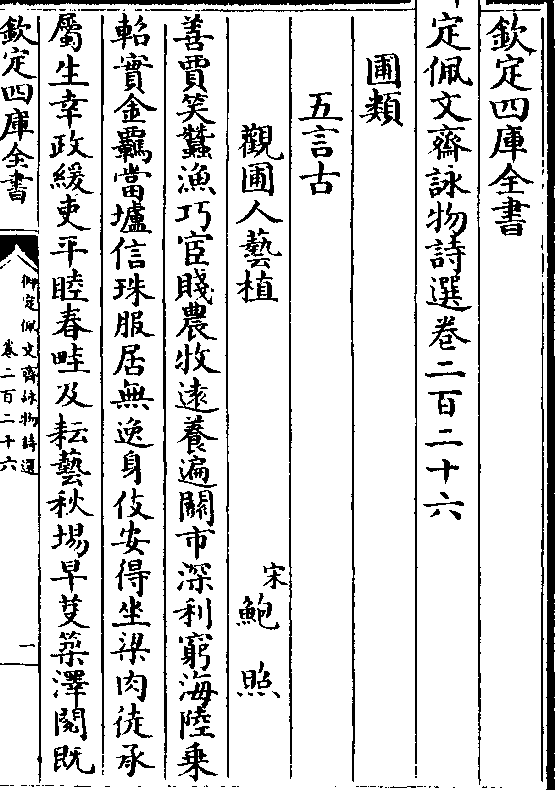 欽定四庫全書
定佩文齋詠物詩選卷二百二十六
圃類
五言古
觀圃人藝植
宋
鮑照
善賈笑蠶漁巧宦賤農牧遠養遍關市深利窮海陸乗
軺實金羈當壚信珠服居無逸身伎安得坐梁肉徒承
屬生幸政緩吏平睦春畦及耘藝秋場早芟築澤閱既
欽定四庫全書
御定佩文齋詠物詩選
卷二百二十六
一